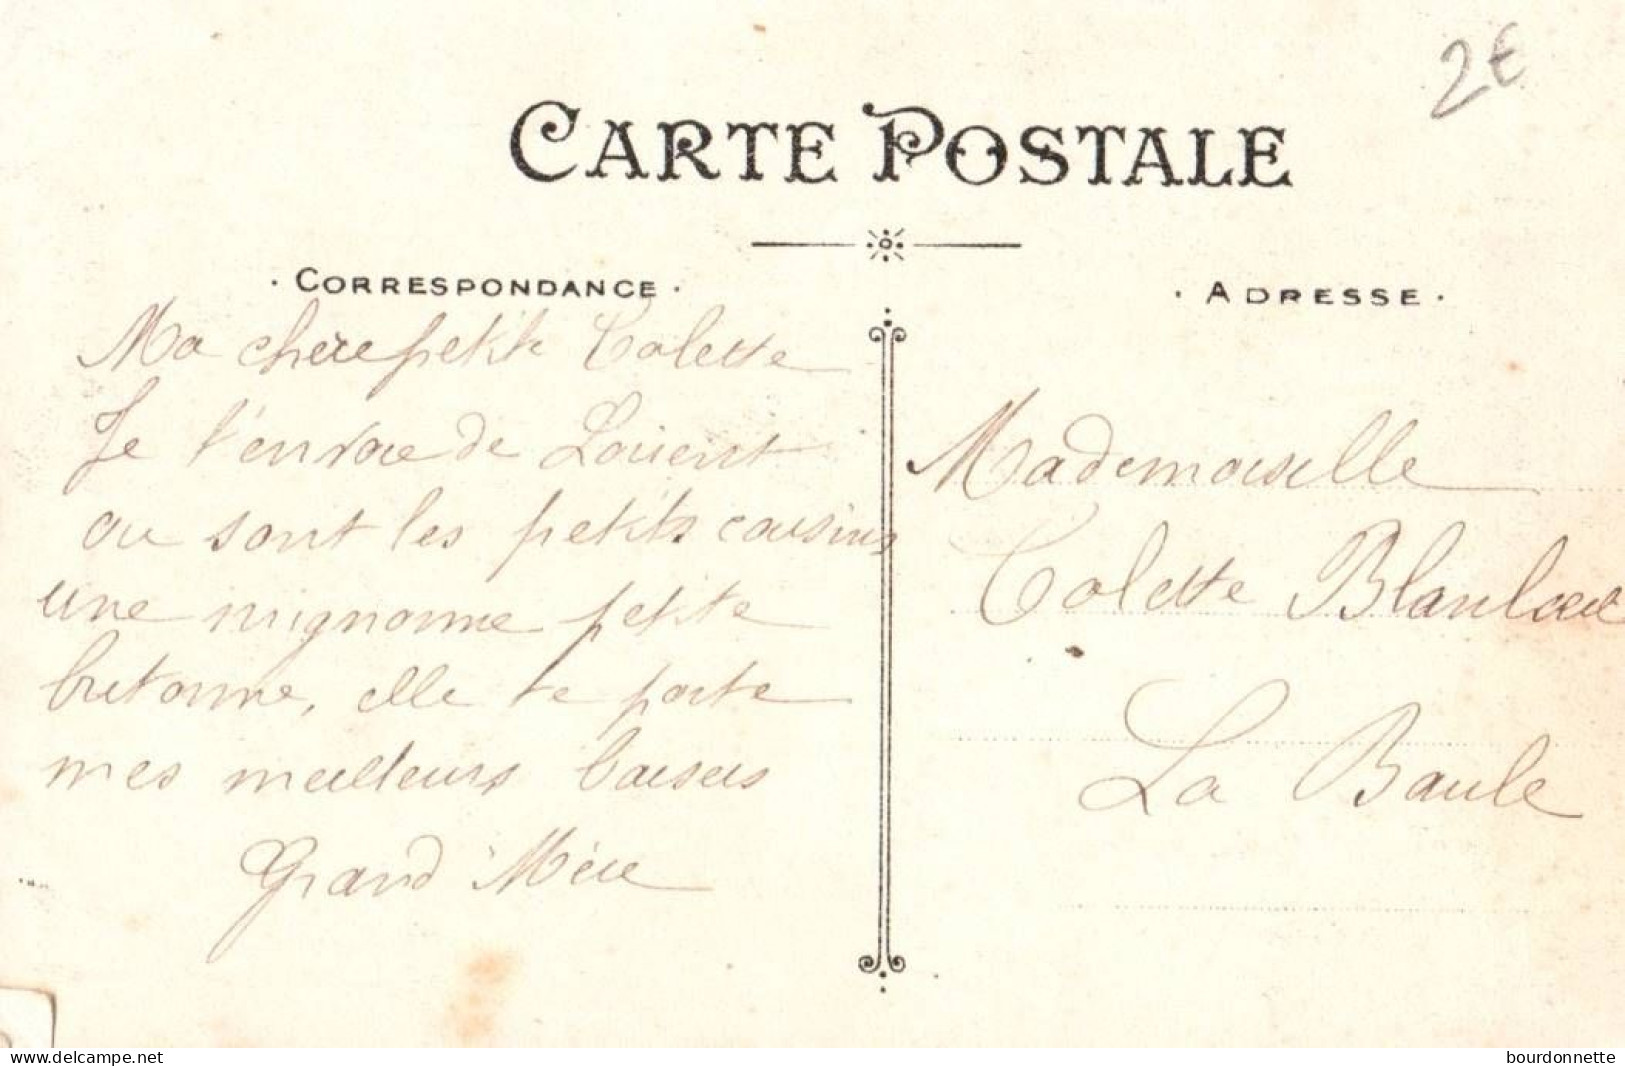 2€
CARTE POSTALE
· CORRESPONDANCE ·
· ADRESSE ·
Ma chère petite Colette
Je t'envoie de Lorient
ou sont les petits cousins
une mignonne petite
bretonne, elle te porte
mes meilleurs baisers
Grand Mère
Mademoiselle
Colette
La Baule
www.delcampe.net
bourdonnette